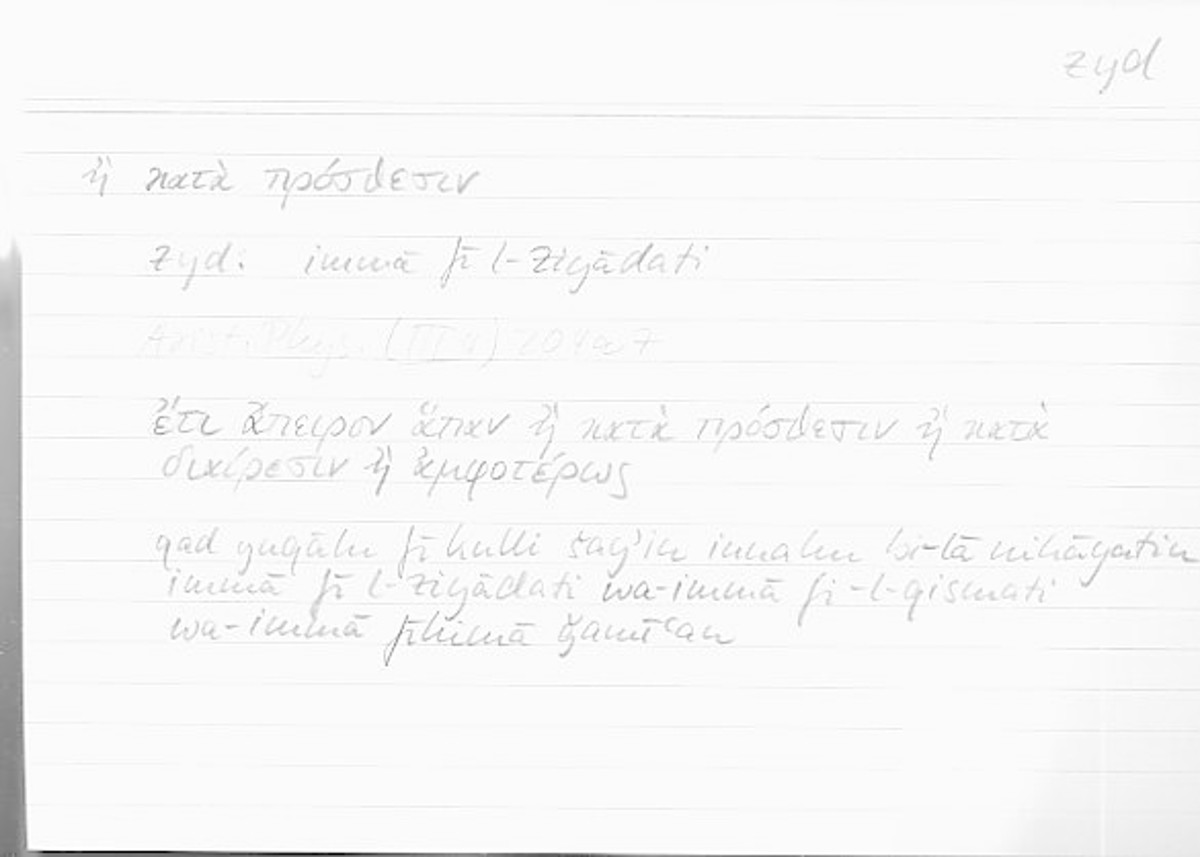 zyd
ἢ κατὰ πρόσθεσιν
zyd: immā fī l-ziyādati
Arist. Phys. (III 4) 204a7
ἔτι ἄπειρον ἅπαν ἢ κατὰ πρόσθεσιν ἢ κατὰ
διαίρεσιν ἢ ἀμφοτέρως
qad yuqālu fī kulli šayʾin innahu bi-lā nihāyatin
immā fī l-ziyādati wa-immā fī-l-qismati
wa-immā fīhimā ǧamīʿan